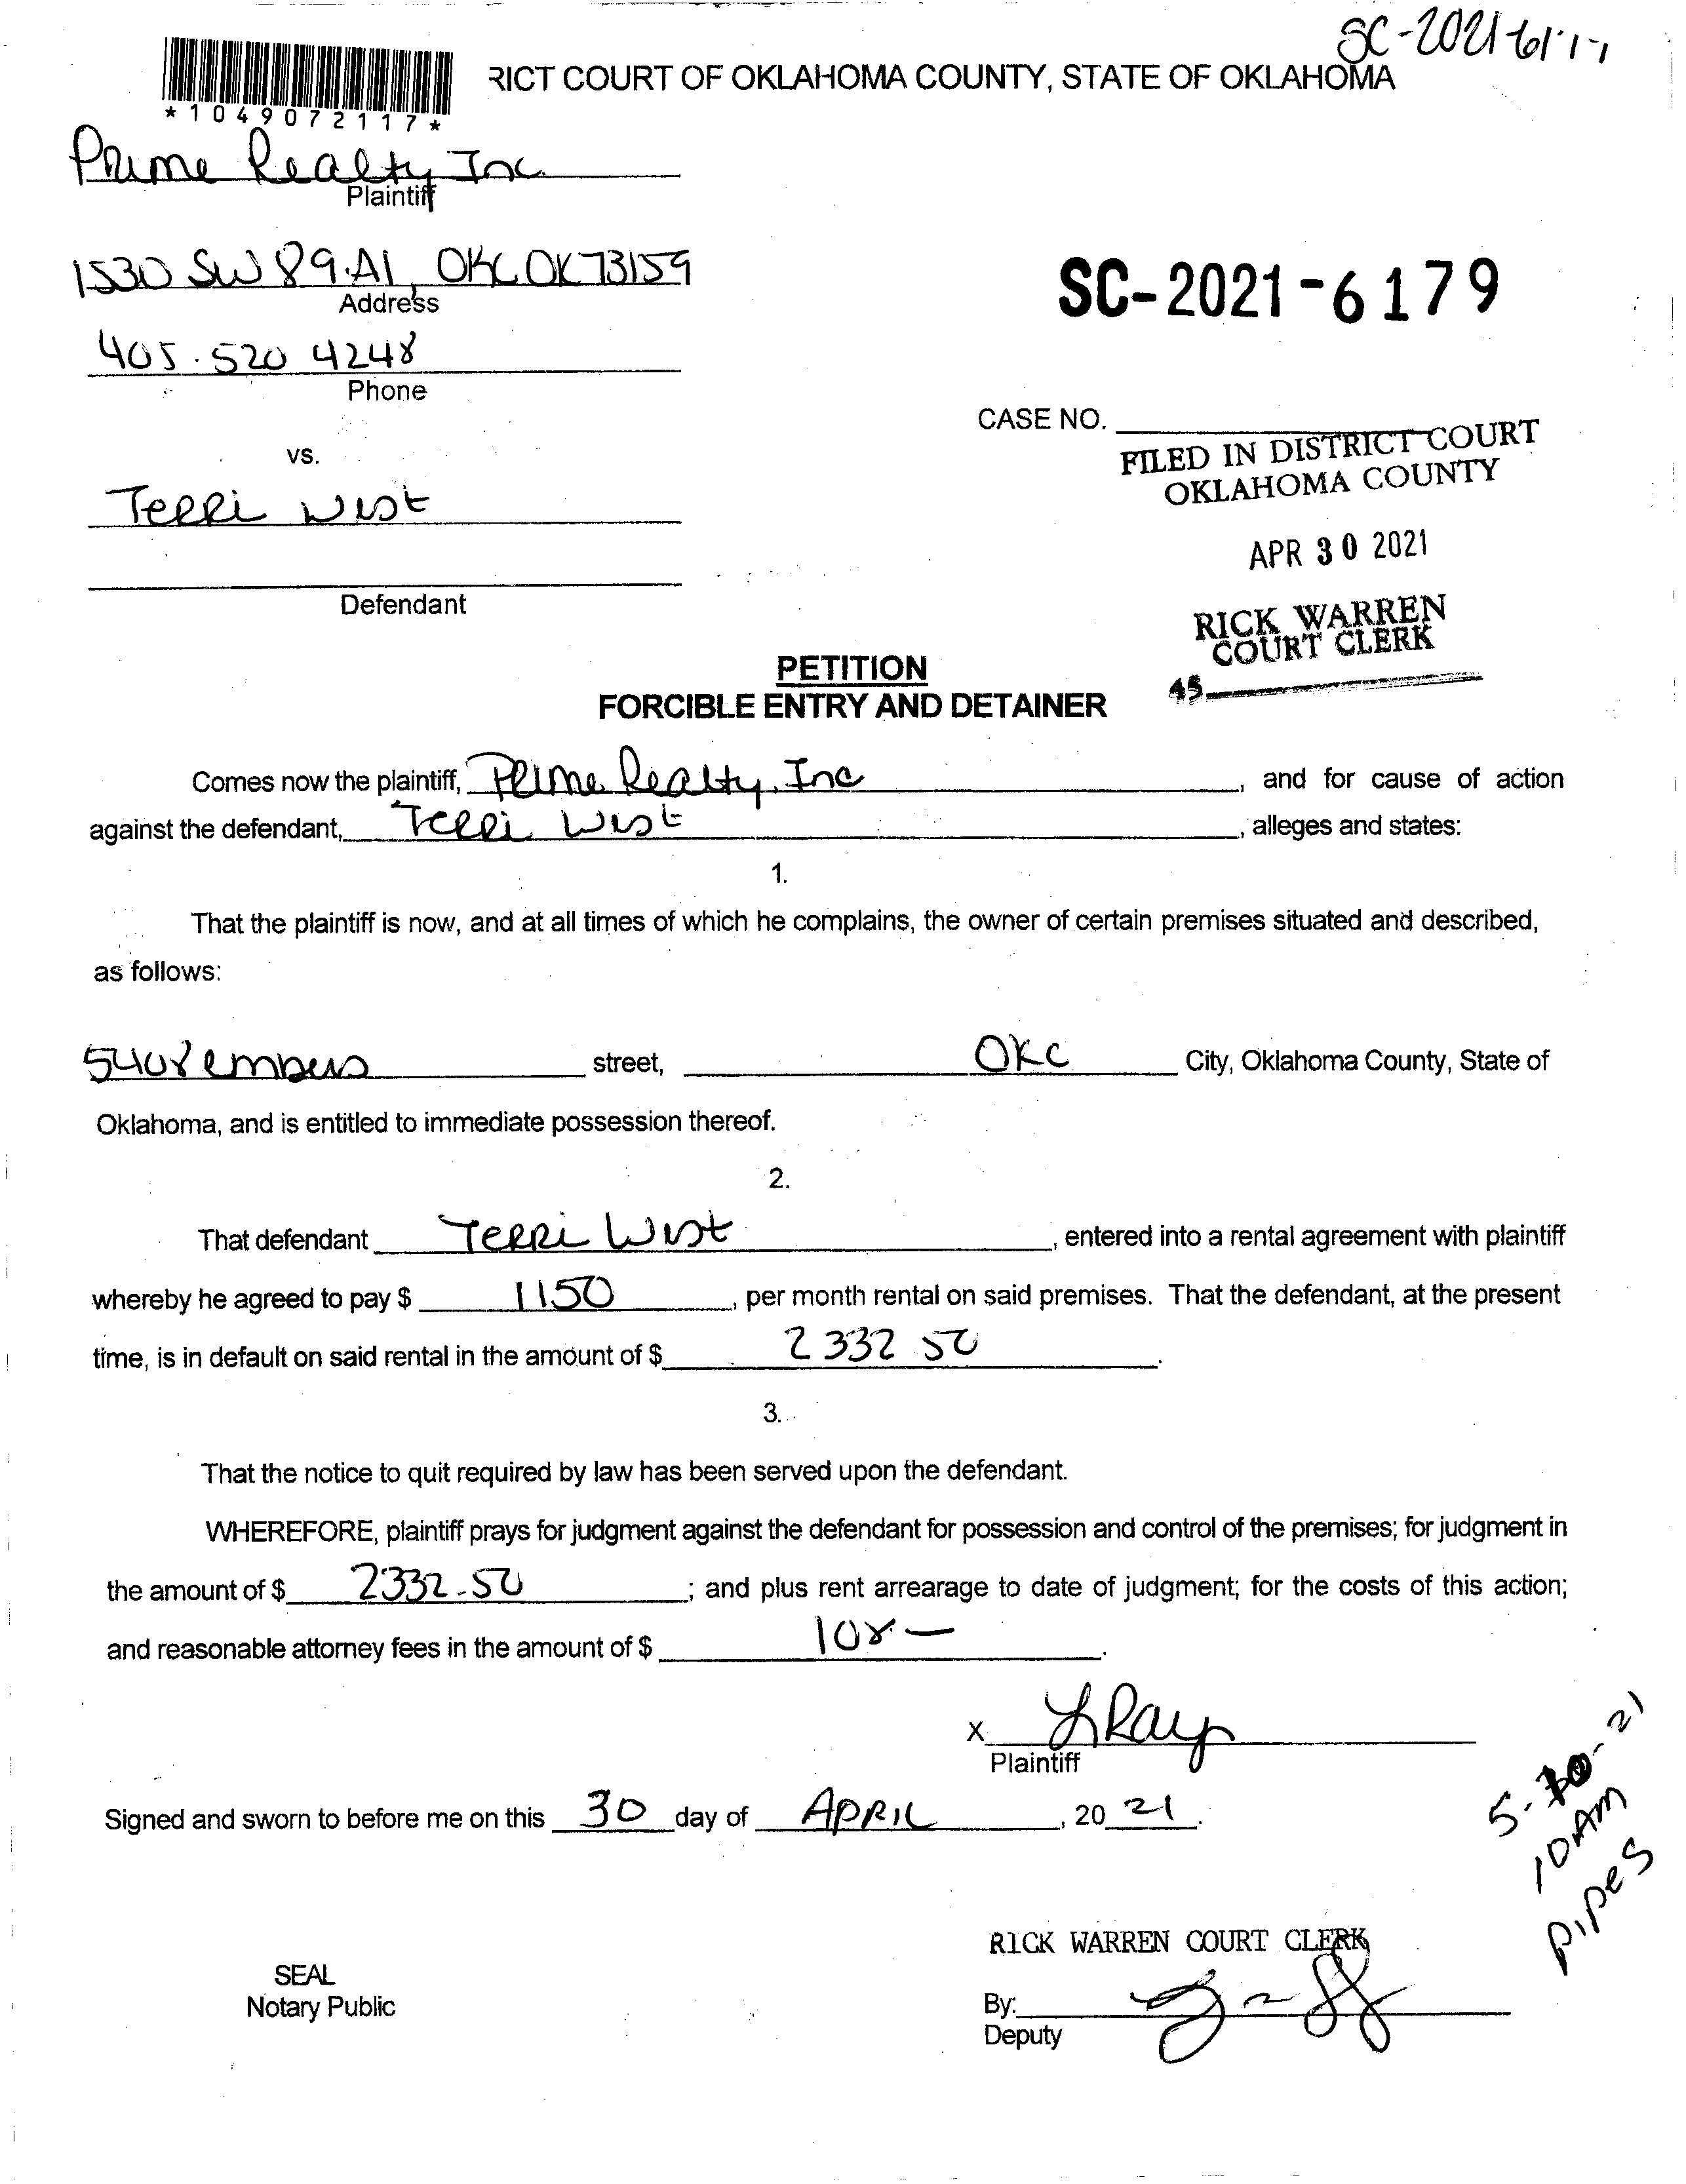 SC-2021-6179
RICT COURT OF OKLAHOMA COUNTY, STATE OF OKLAHOMA
*1049072117*
Prime Realty Inc.
Plaintiff
1530 SW 89 A1, OKC OK 73159
Address
SC-2021-6179
405.520 4248
Phone
CASE NO.
FILED IN DISTRICT COURT
OKLAHOMA COUNTY
vs.
Terri West
APR 30 2021
Defendant
RICK WARREN
COURT CLERK
45
PETITION
FORCIBLE ENTRY AND DETAINER
Comes now the plaintiff, Prime Realty, Inc, and for cause of action
against the defendant, Terri West, alleges and states:
1.
That the plaintiff is now, and at all times of which he complains, the owner of certain premises situated and described,
as follows:
5408 embers street, OKC City, Oklahoma County, State of
Oklahoma, and is entitled to immediate possession thereof.
2.
That defendant Terri West, entered into a rental agreement with plaintiff
whereby he agreed to pay $ 1150, per month rental on said premises. That the defendant, at the present
time, is in default on said rental in the amount of $ 2332 50.
3.
That the notice to quit required by law has been served upon the defendant.
WHEREFORE, plaintiff prays for judgment against the defendant for possession and control of the premises; for judgment in
the amount of $ 2332.50; and plus rent arrearage to date of judgment; for the costs of this action;
and reasonable attorney fees in the amount of $ 108-.
x LRay
Plaintiff
Signed and sworn to before me on this 30 day of APRIL, 20 21.
5- -21
10AM
Pipes
RICK WARREN COURT CLERK
SEAL
Notary Public
By:
Deputy